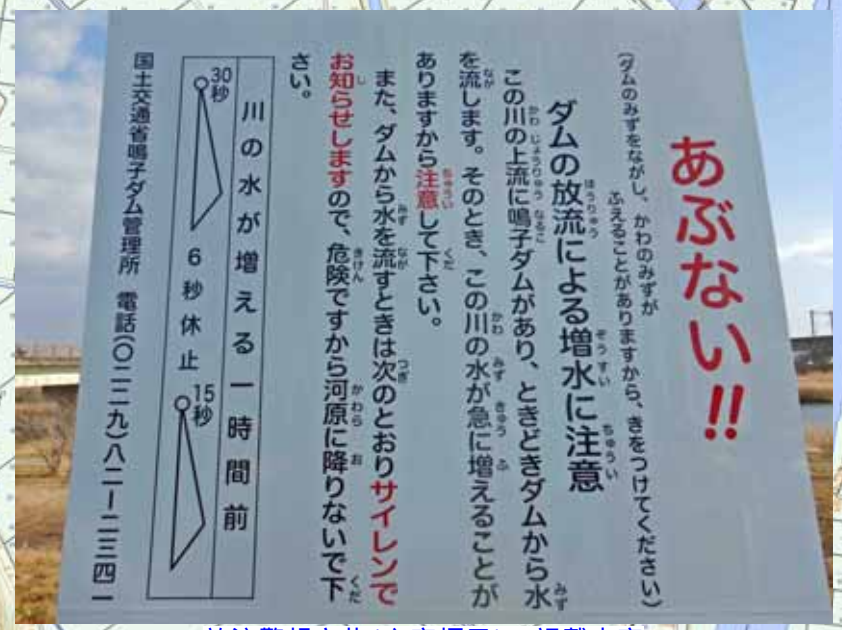 あぶない!!
(ダムのみずをながし、かわのみずが
ふえることがありますから、きをつけてください)
ダムの放流による増水に注意
この川の上流に鳴子ダムがあり、ときどきダムから水
を流します。そのとき、この川の水が急に増えることが
ありますから注意して下さい。
また、ダムから水を流すときは次のとおりサイレンで
お知らせしますので、危険ですから河原に降りないで下
さい。
川の水が増える一時間前
30秒
6秒休止
15秒
国土交通省鳴子ダム管理所 電話(〇二二九)八二ー二三四一